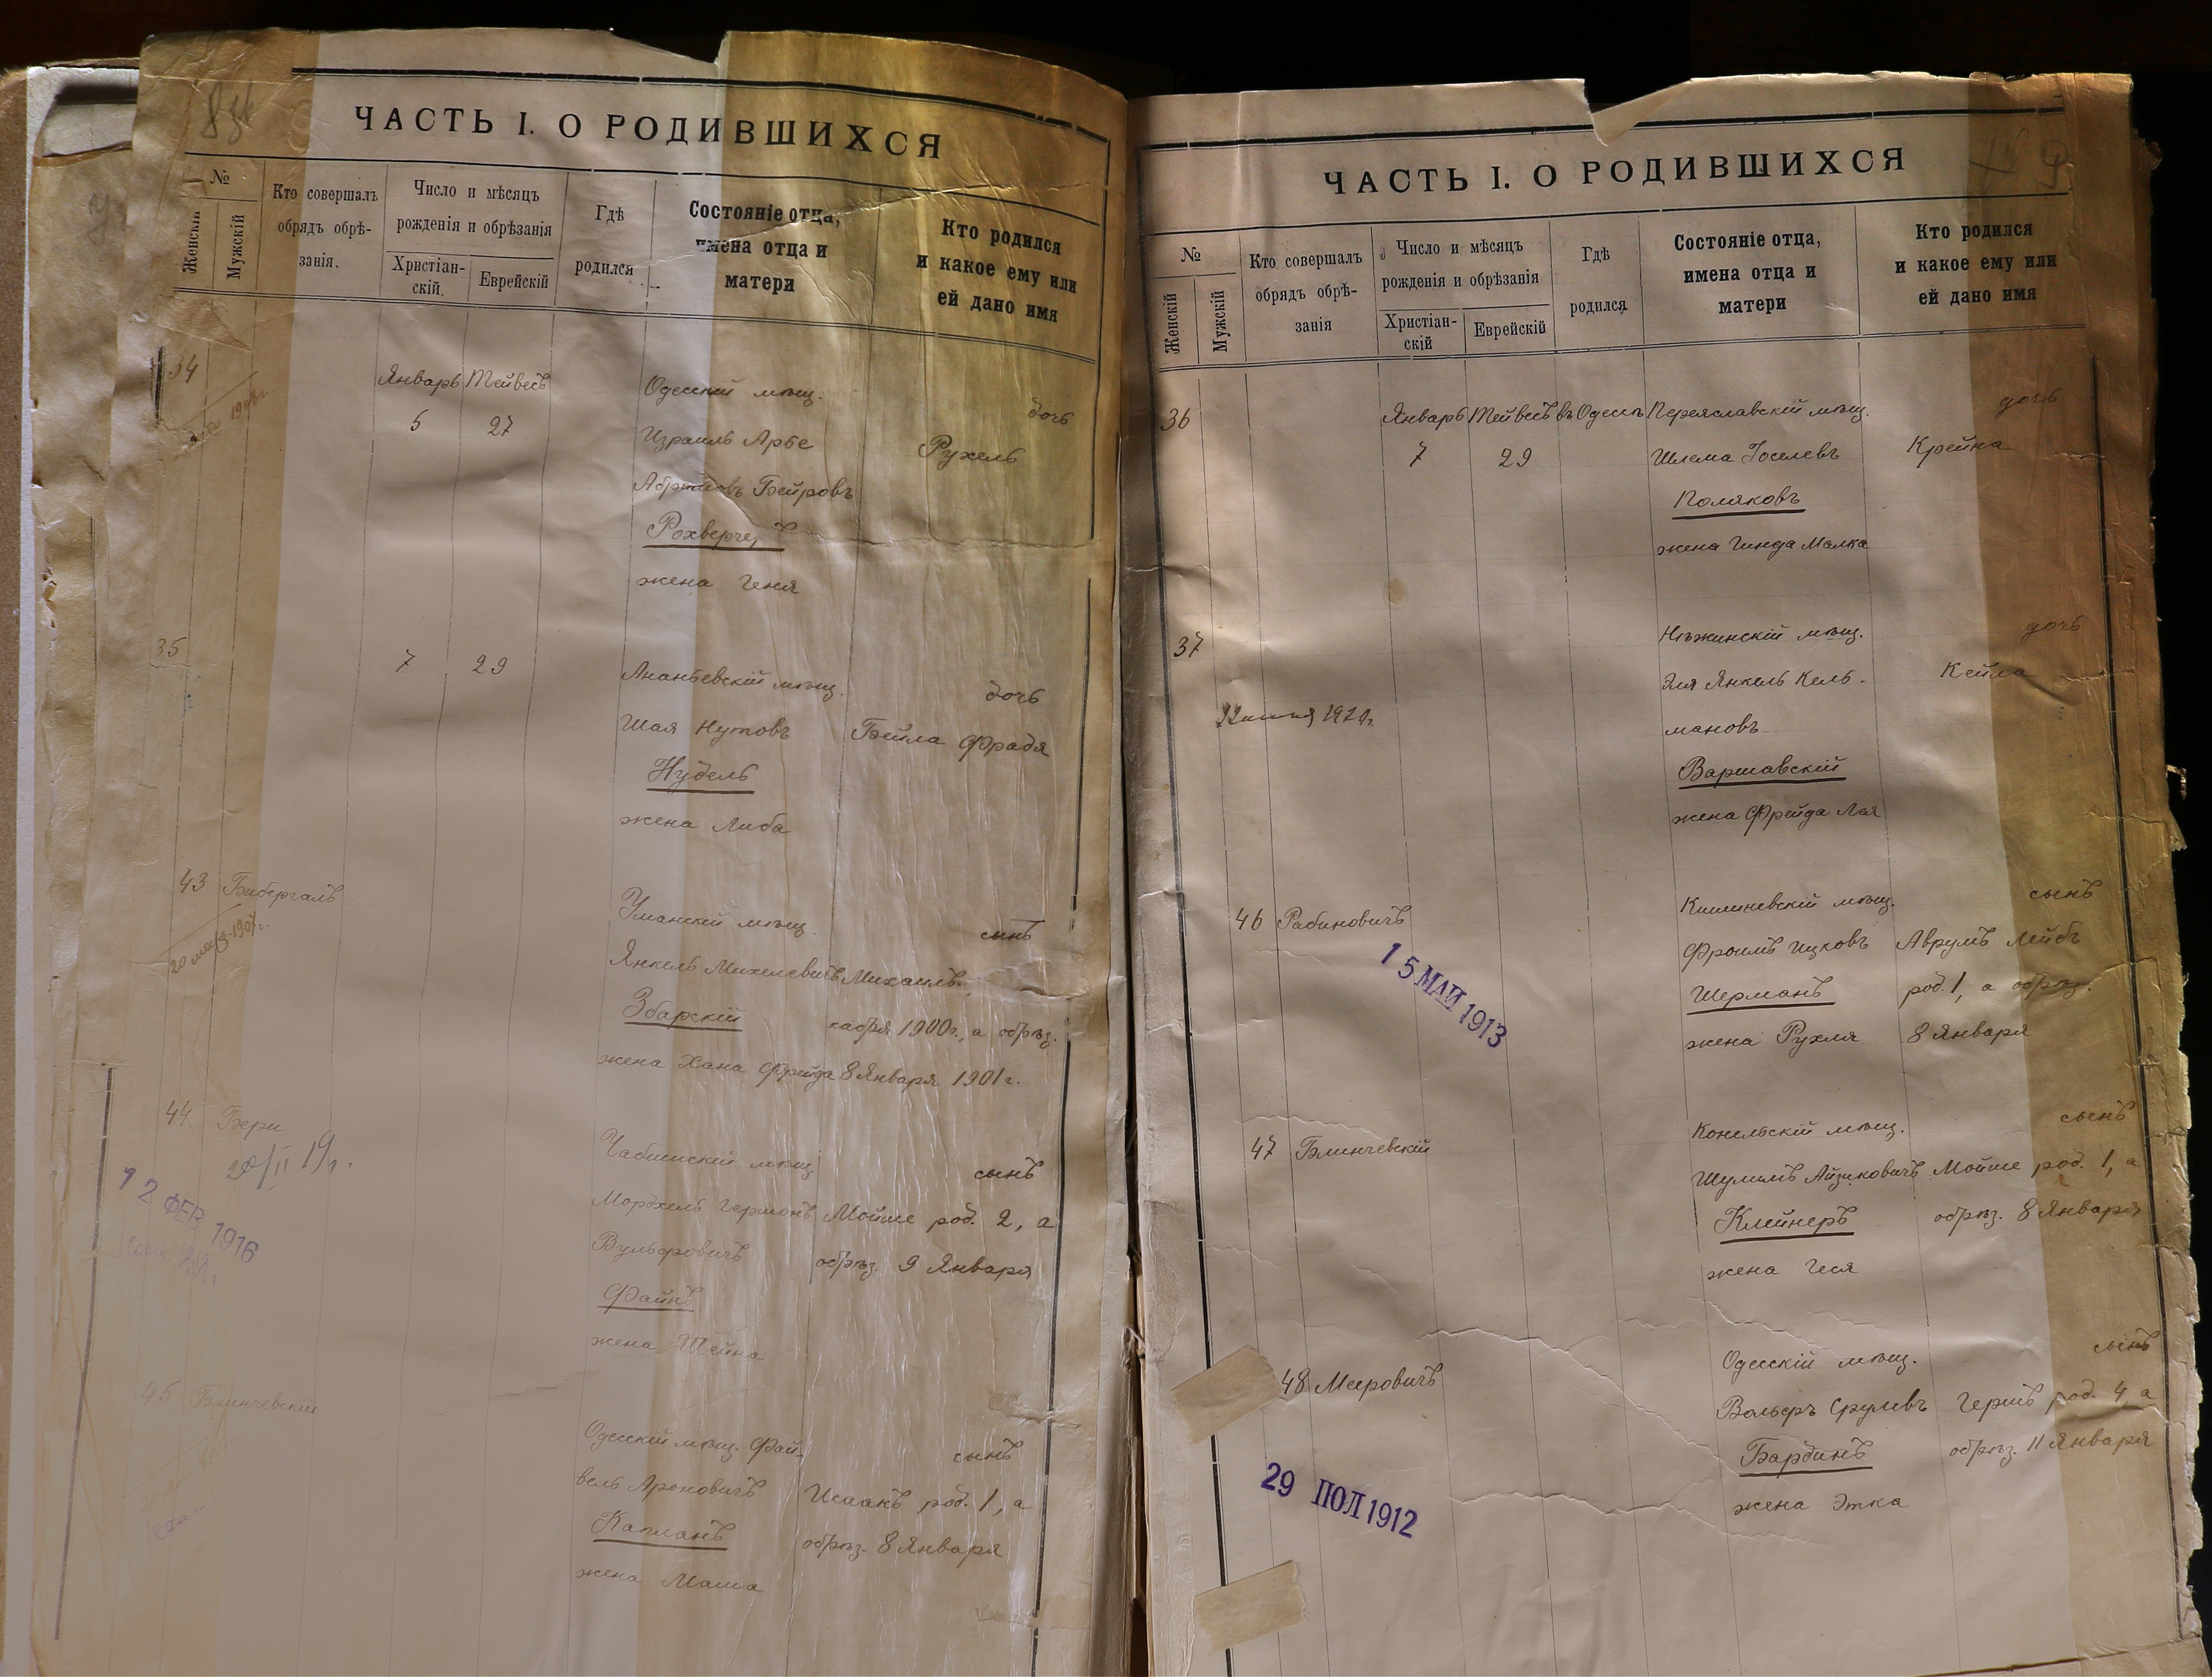 ЧАСТЬ I. О РОДИВШИХСЯ
№
Женскій
Мужскій
Кто совершалъ
обрядъ обрѣ-
занія.
Число и мѣсяцъ
рожденія и обрѣзанія
Христіан-
скій.
Еврейскій
Гдѣ
родился
Состояніе отца,
имена отца и
матери
Кто родился
и какое ему или
ей дано имя
34
Январь Тейвесъ
5 27
Одесскій мѣщ.
Израиль Арье
Абрамовъ Бейровъ
жена Геня
дочь
Рухель
35
7 29
Ананьевскій мѣщ.
Шая Нутовъ
Нудель
жена Либа
дочь
Бейла Фрадя
43 Бибергалъ
Уманскій мѣщ.
Янкель Михелевичъ
Збарскій
жена Хана Фрейда
сынъ
Михаилъ
кабря 1900г., а обрѣз.
8 Января 1901г.
44 Бери
20/II 19г.
12 ФЕВ 1916
мѣщ.
Мордхель Гершонъ
Вульфовичъ
Файнъ
жена Шейна
сынъ
Мойше род. 2, а
обрѣз. 9 Января
45 Блинчевскій
Одесскій мѣщ. Фай-
вель Ароновичъ
Капланъ
жена Маша
сынъ
Исаакъ род. 1, а
обрѣз. 8 Января
ЧАСТЬ I. О РОДИВШИХСЯ
№
Женскій
Мужскій
Кто совершалъ
обрядъ обрѣ-
занія
Число и мѣсяцъ
рожденія и обрѣзанія
Христіан-
скій
Еврейскій
Гдѣ
родился
Состояніе отца,
имена отца и
матери
Кто родился
и какое ему или
ей дано имя
36
Январь Тейвесъ въ Одессѣ
7 29
Переяславскій мѣщ.
Шлема Іоселевъ
Поляковъ
жена Гинда Малка
дочь
Крейна
37
Нѣжинскій мѣщ.
Эля Янкель Кель-
мановъ
Варшавскій
жена Фрейда Лея
дочь
Кейла
46 Рабиновичъ
15 МАЙ 1913
Кишиневскій мѣщ.
Фроимъ Ицковъ
Шерманъ
жена Рухля
сынъ
Аврумъ Лейбъ
род. 1, а обрѣз.
8 Января
47 Блинчевскій
Конельскій мѣщ.
Шулимъ Айзиковичъ
Клейнеръ
жена Геся
сынъ
Мойше род. 1, а
обрѣз. 8 Января
48 Мееровичъ
29 ІЮЛ 1912
Одесскій мѣщ.
Вольфъ Срулевъ
Бардинъ
жена Этка
сынъ
Гершъ род. 4, а
обрѣз. 11 Января